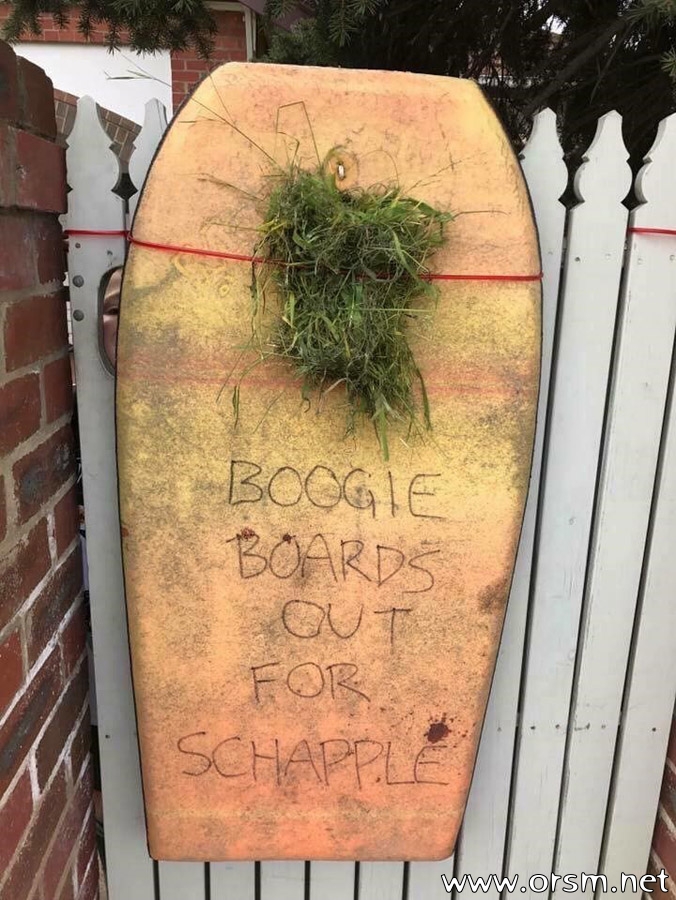 BOOGIE
BOARDS
OUT
FOR
SCHAPPLE
www.orsm.net